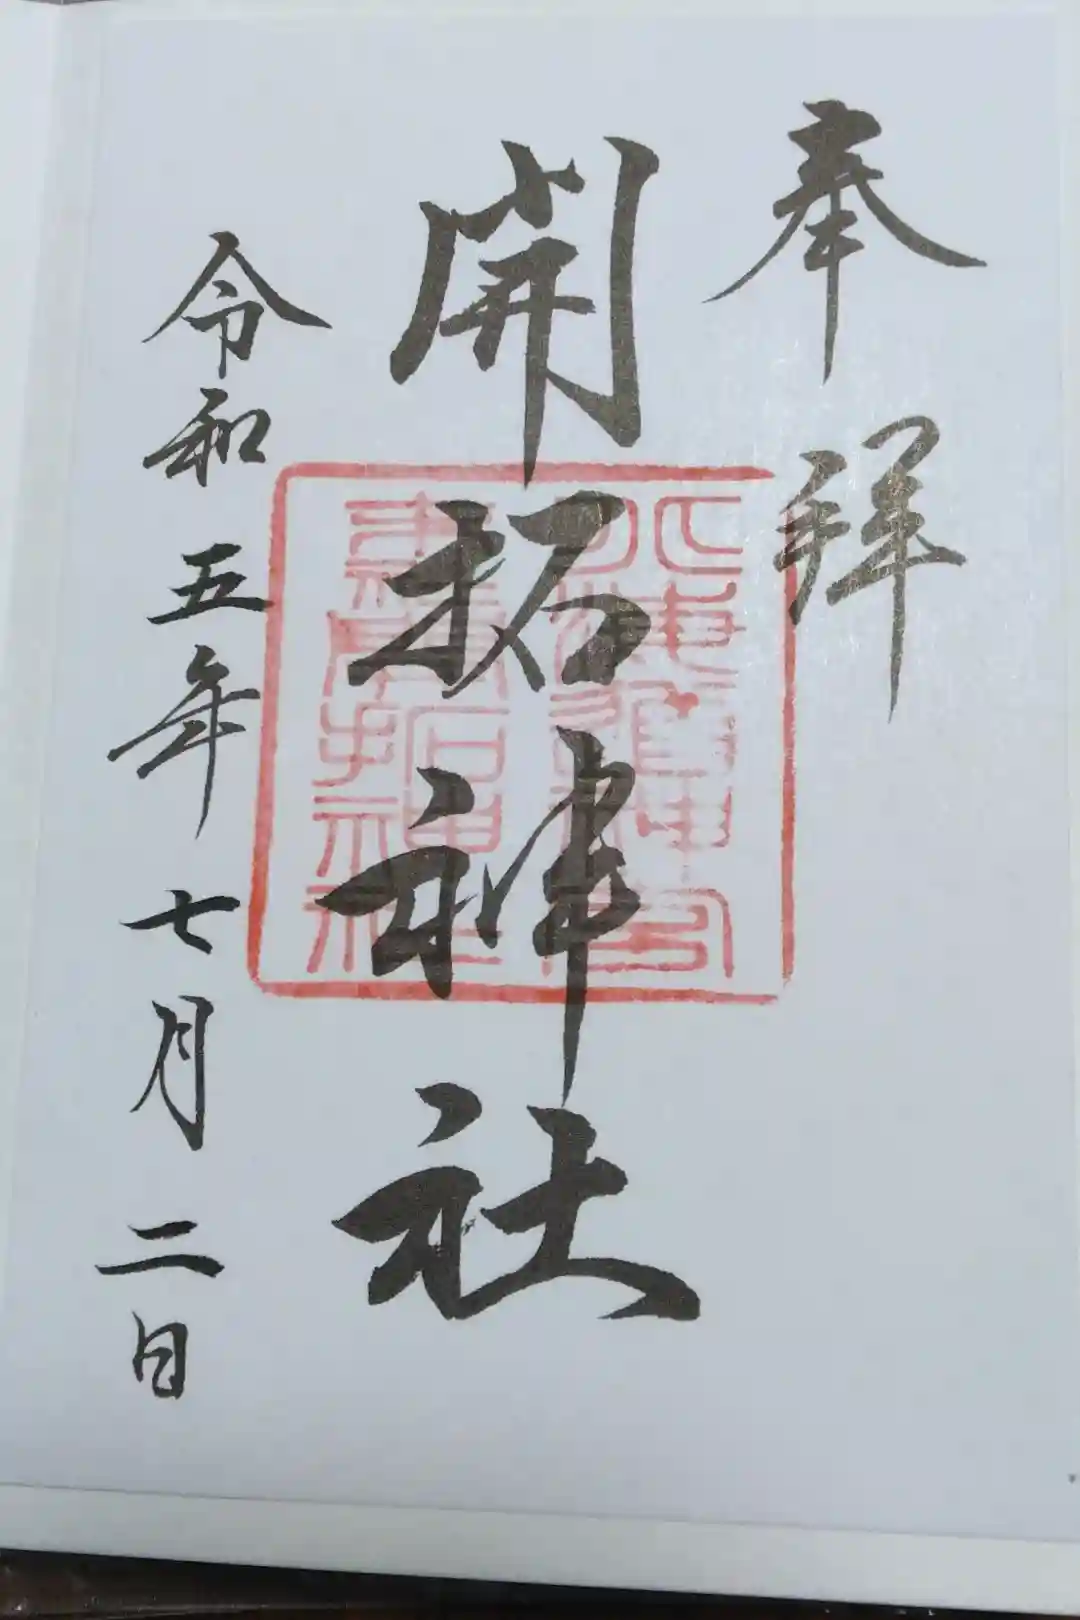 奉拝
開拓神社
令和五年七月二日